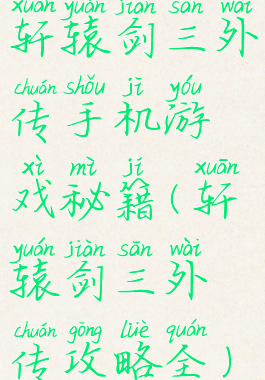 xuān yuán jiàn sān wài
轩辕剑三外
chuán shǒu jī yóu
传手机游
xì mì jí xuān
戏秘籍(轩
yuán jiàn sān wài
辕剑三外
chuán gōng lüè quán
传攻略全)